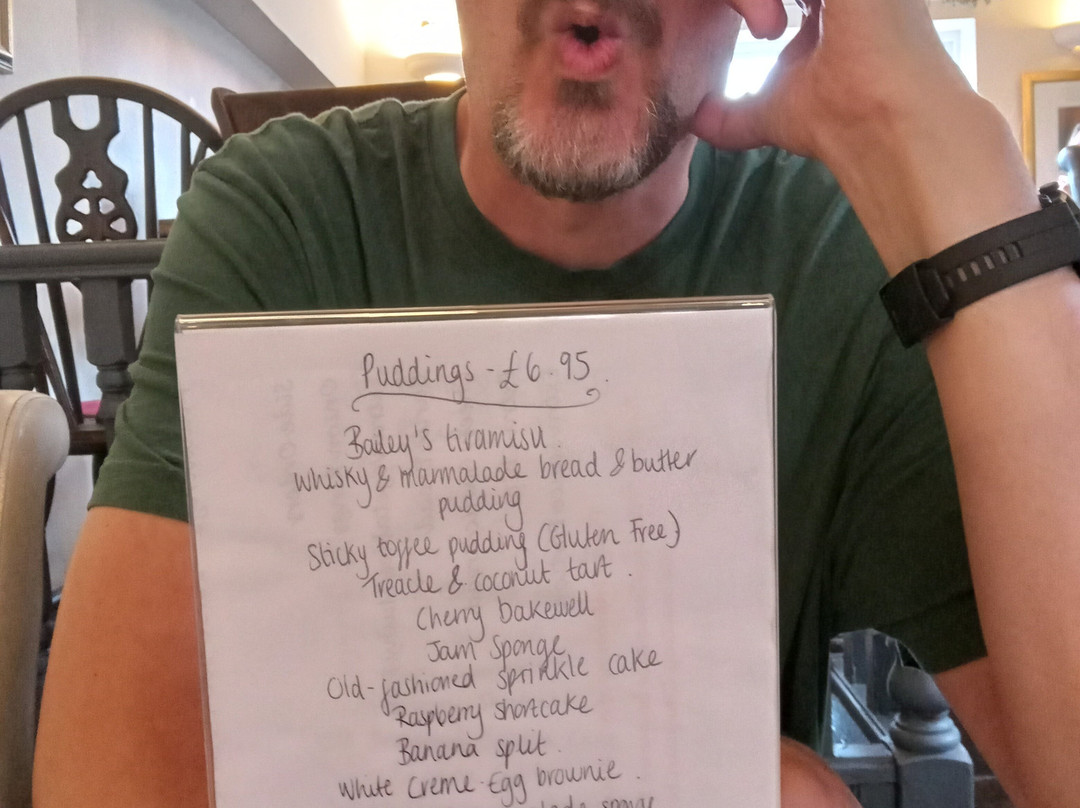 Puddings - £6.95.
Bailey's tiramisu.
Whisky & marmalade bread & butter
pudding
Sticky toffee pudding (Gluten Free)
Treacle & coconut tart.
Cherry bakewell
Jam Sponge
Old-fashioned sprinkle cake
Raspberry shortcake
Banana split.
White Creme-Egg brownie.